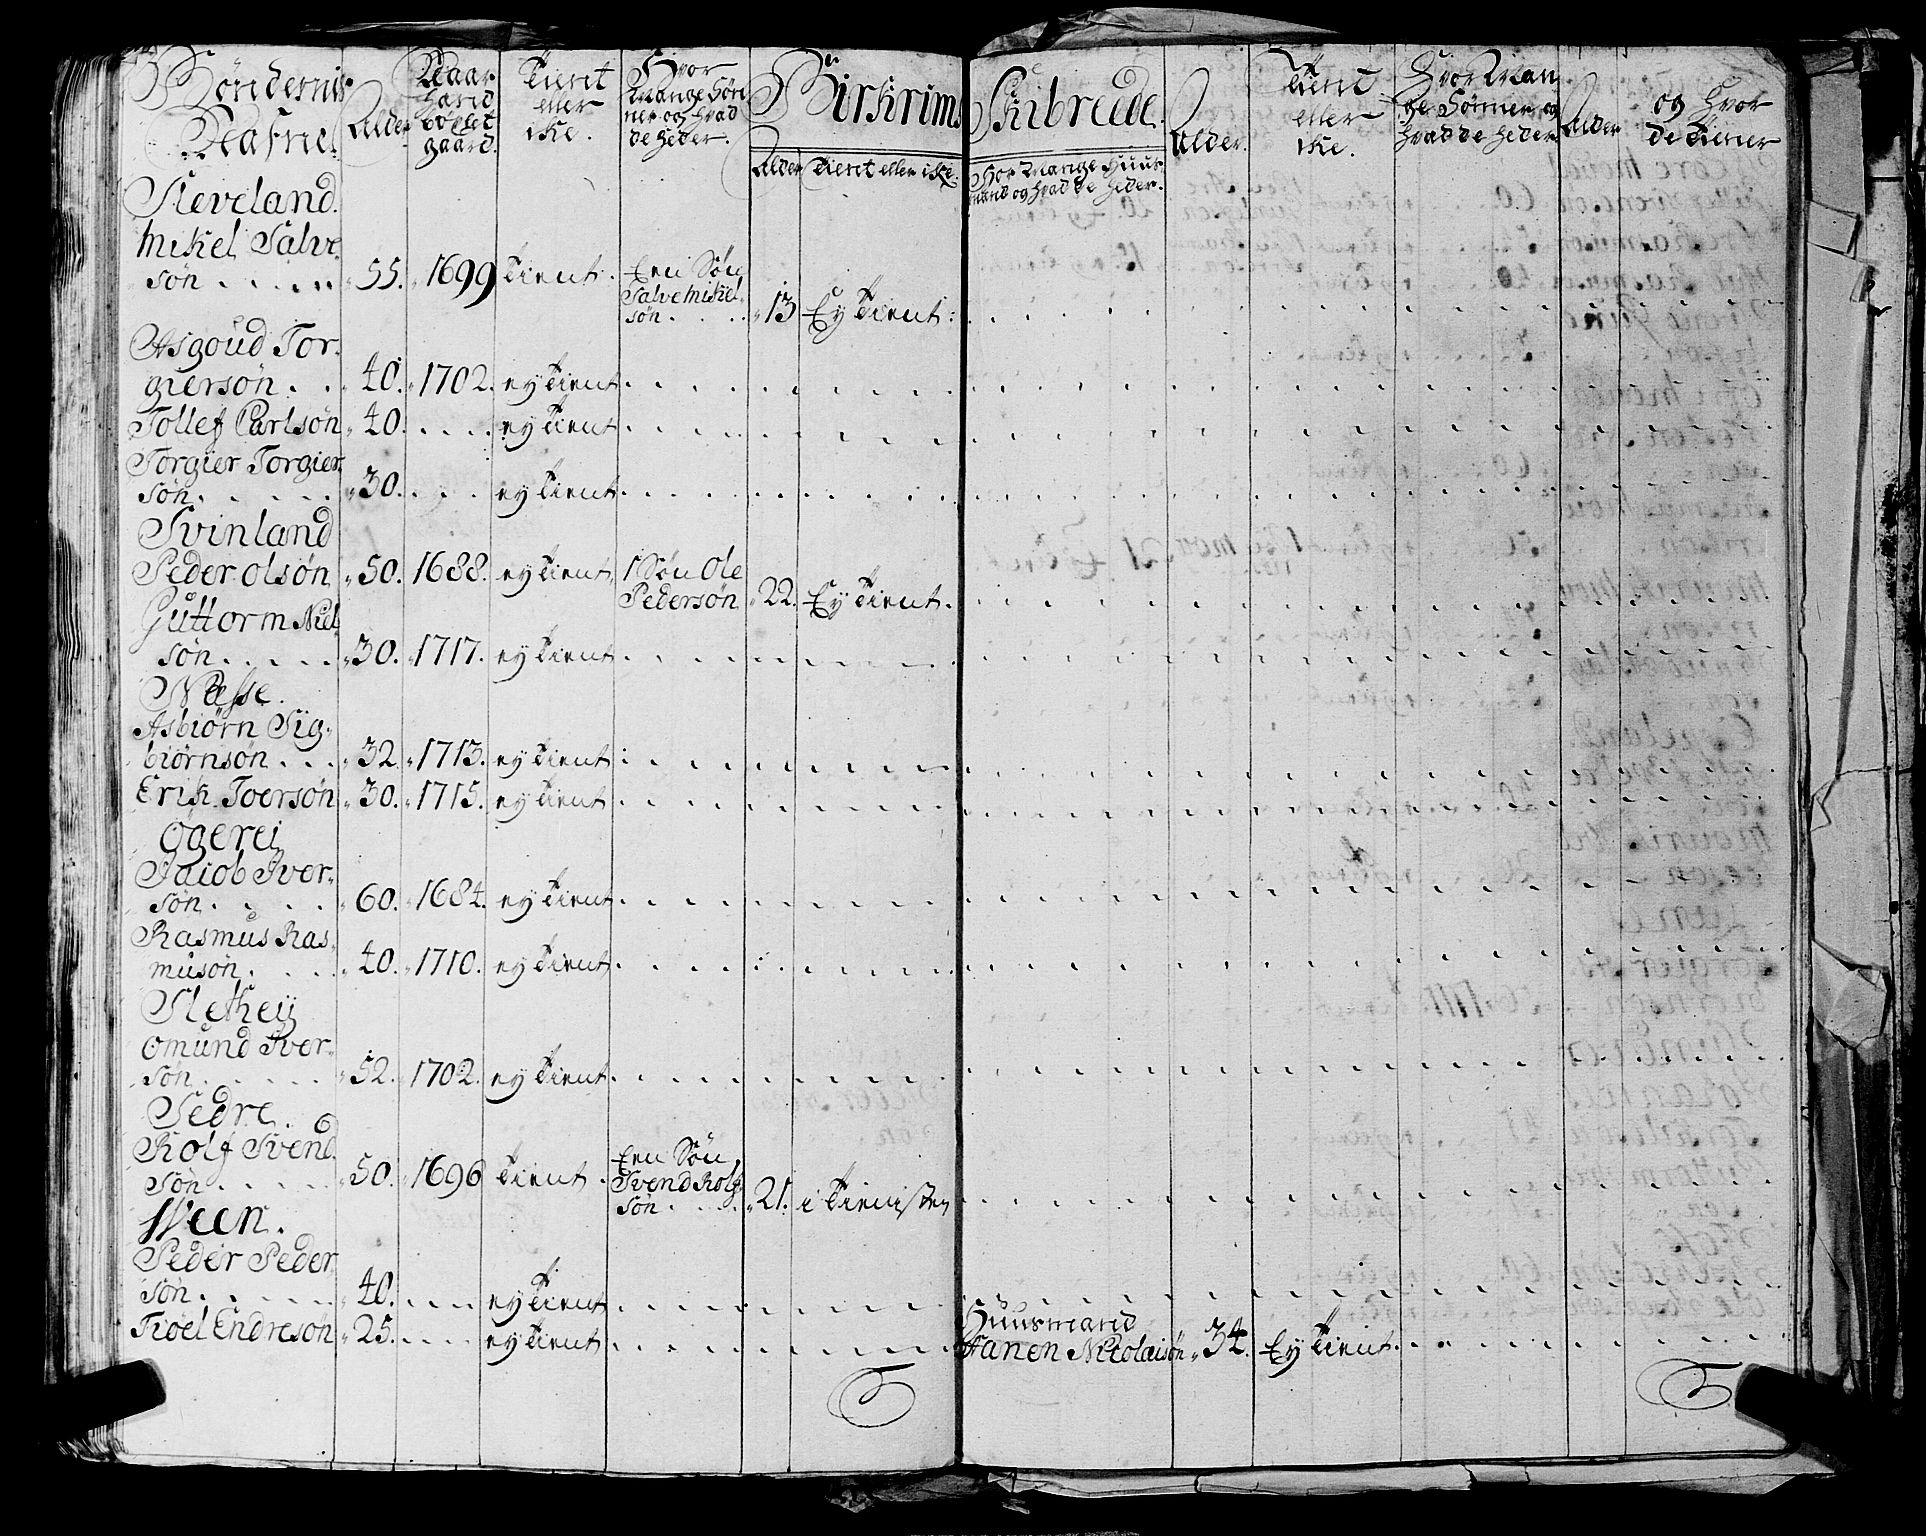 Bøndernis Nafne
Alder
Naar hand bøxlet gaard.
Tient eller iké.
Hvor Mange Søn ner og hvad de heder.
Birkrims Skibreede.
Alder Tient eller iké.
Hor Mange Huus mand og hvad de heder.
Alder.
Tient eller iké.
Hvor Man ge Sønner og hvad de heder.
Alder
og hvor de tiener
Sleveland.
Mikel Salve
søn . . . . 55. 1699 Tient. Een Søn
Salve Mikel
søn . . . 13 Ey Tient.
Asgoud Tor-
giersøn . . 40. 1702. ey Tient
Tollef Carlsøn 40. . . . . ey Tient
Torgier Torgier
søn . . . . . 30. . . . ey Tient
Svinland
Peder Olsøn 50. 1688. ey Tient 1 Søn Ole
Pedersøn 22. Ey Tient.
Guttorm Niel
søn . . . . . 30. 1717. ey Tient
Næsse.
Asbiørn Sig-
biørnsøn . . . 32. 1713. ey Tient
Erik Toersøn 30. 1715. ey Tient
Ögerej
Jacob Iver-
søn . . . . 60. 1684. ey Tient
Rasmus Ras-
musøn . . . . 40. 1710. ey Tient
Sletheij
Omund Iver-
søn . . . . . 52. 1702. ey Tient
Sedre.
Rolf Svend
søn . . . . . 50. 1696 Tient. Een Søn
Svend Rolf
søn . . . . 21. i Tienisten
Veen.
Peder Peder
søn . . . . . 40. . . . . ey Tient
Huusmand
Tiøel Endresøn 25. . . . . ey Tient Hanen Nicolaisøn 34. Ey Tient.